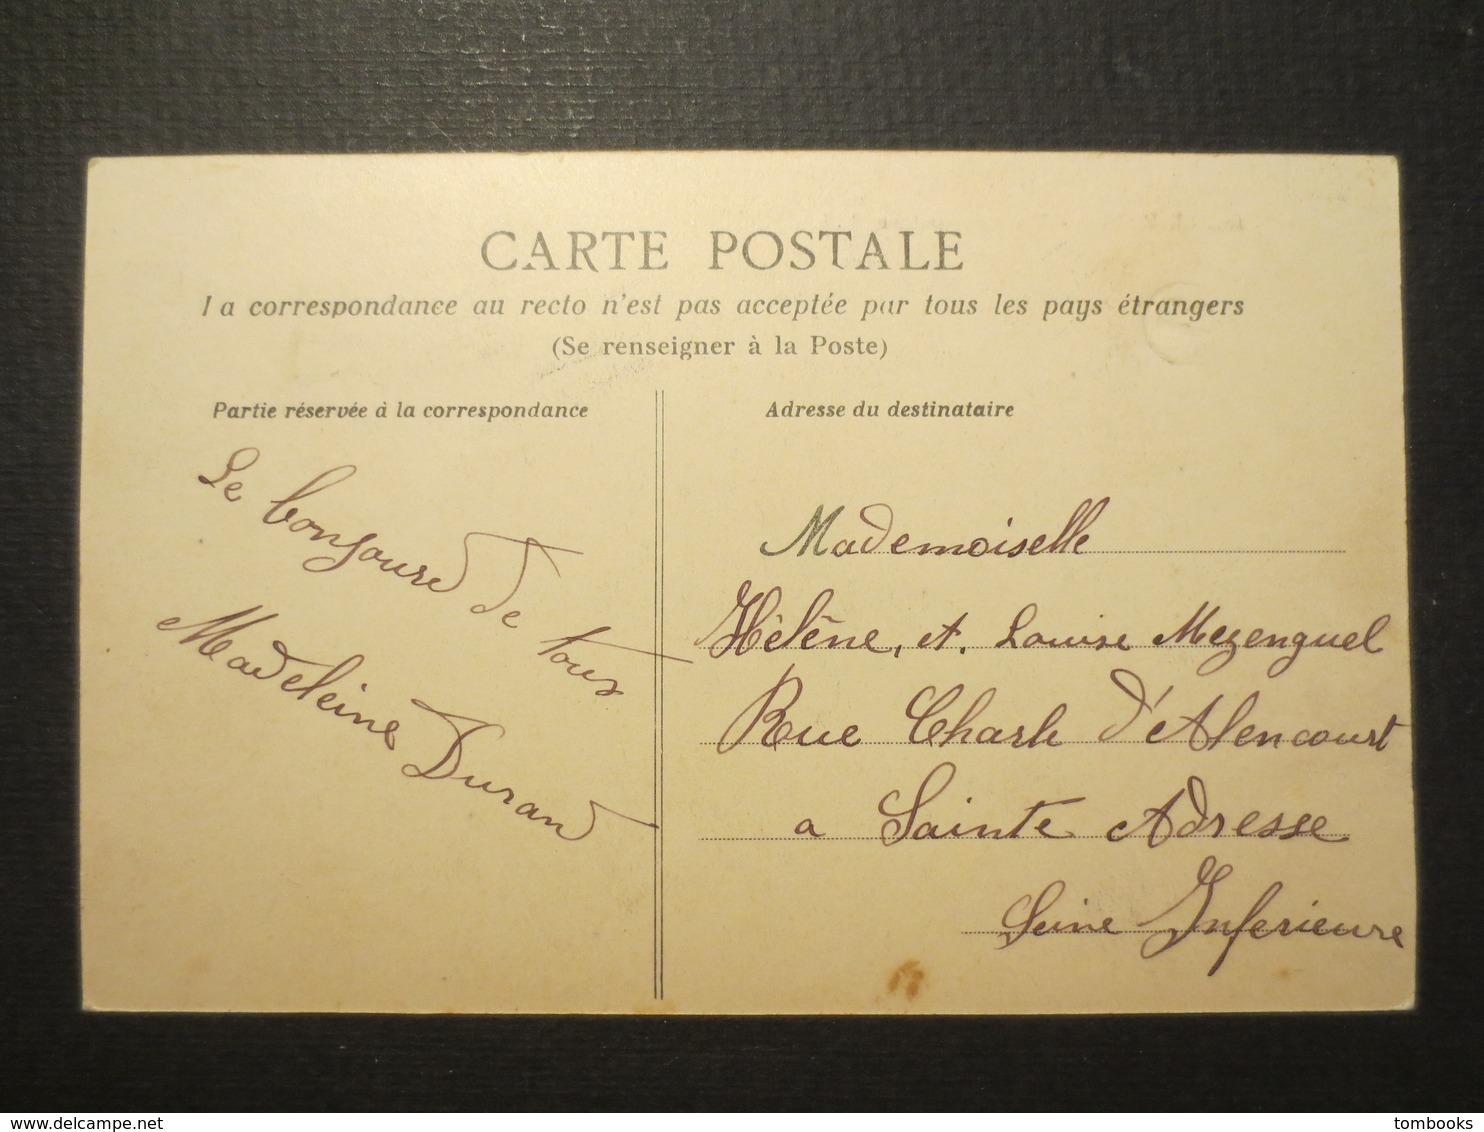 CARTE POSTALE
La correspondance au recto n'est pas acceptée par tous les pays étrangers
(Se renseigner à la Poste)
Partie réservée à la correspondance
Le bonjoure de tous
Madeleine Durand
Adresse du destinataire
Mademoiselle
Hèlène, et. Louise Mezenguel
Rue Charle d'Alencourt
a Sainte Adresse
Seine Inferieure
tombooks